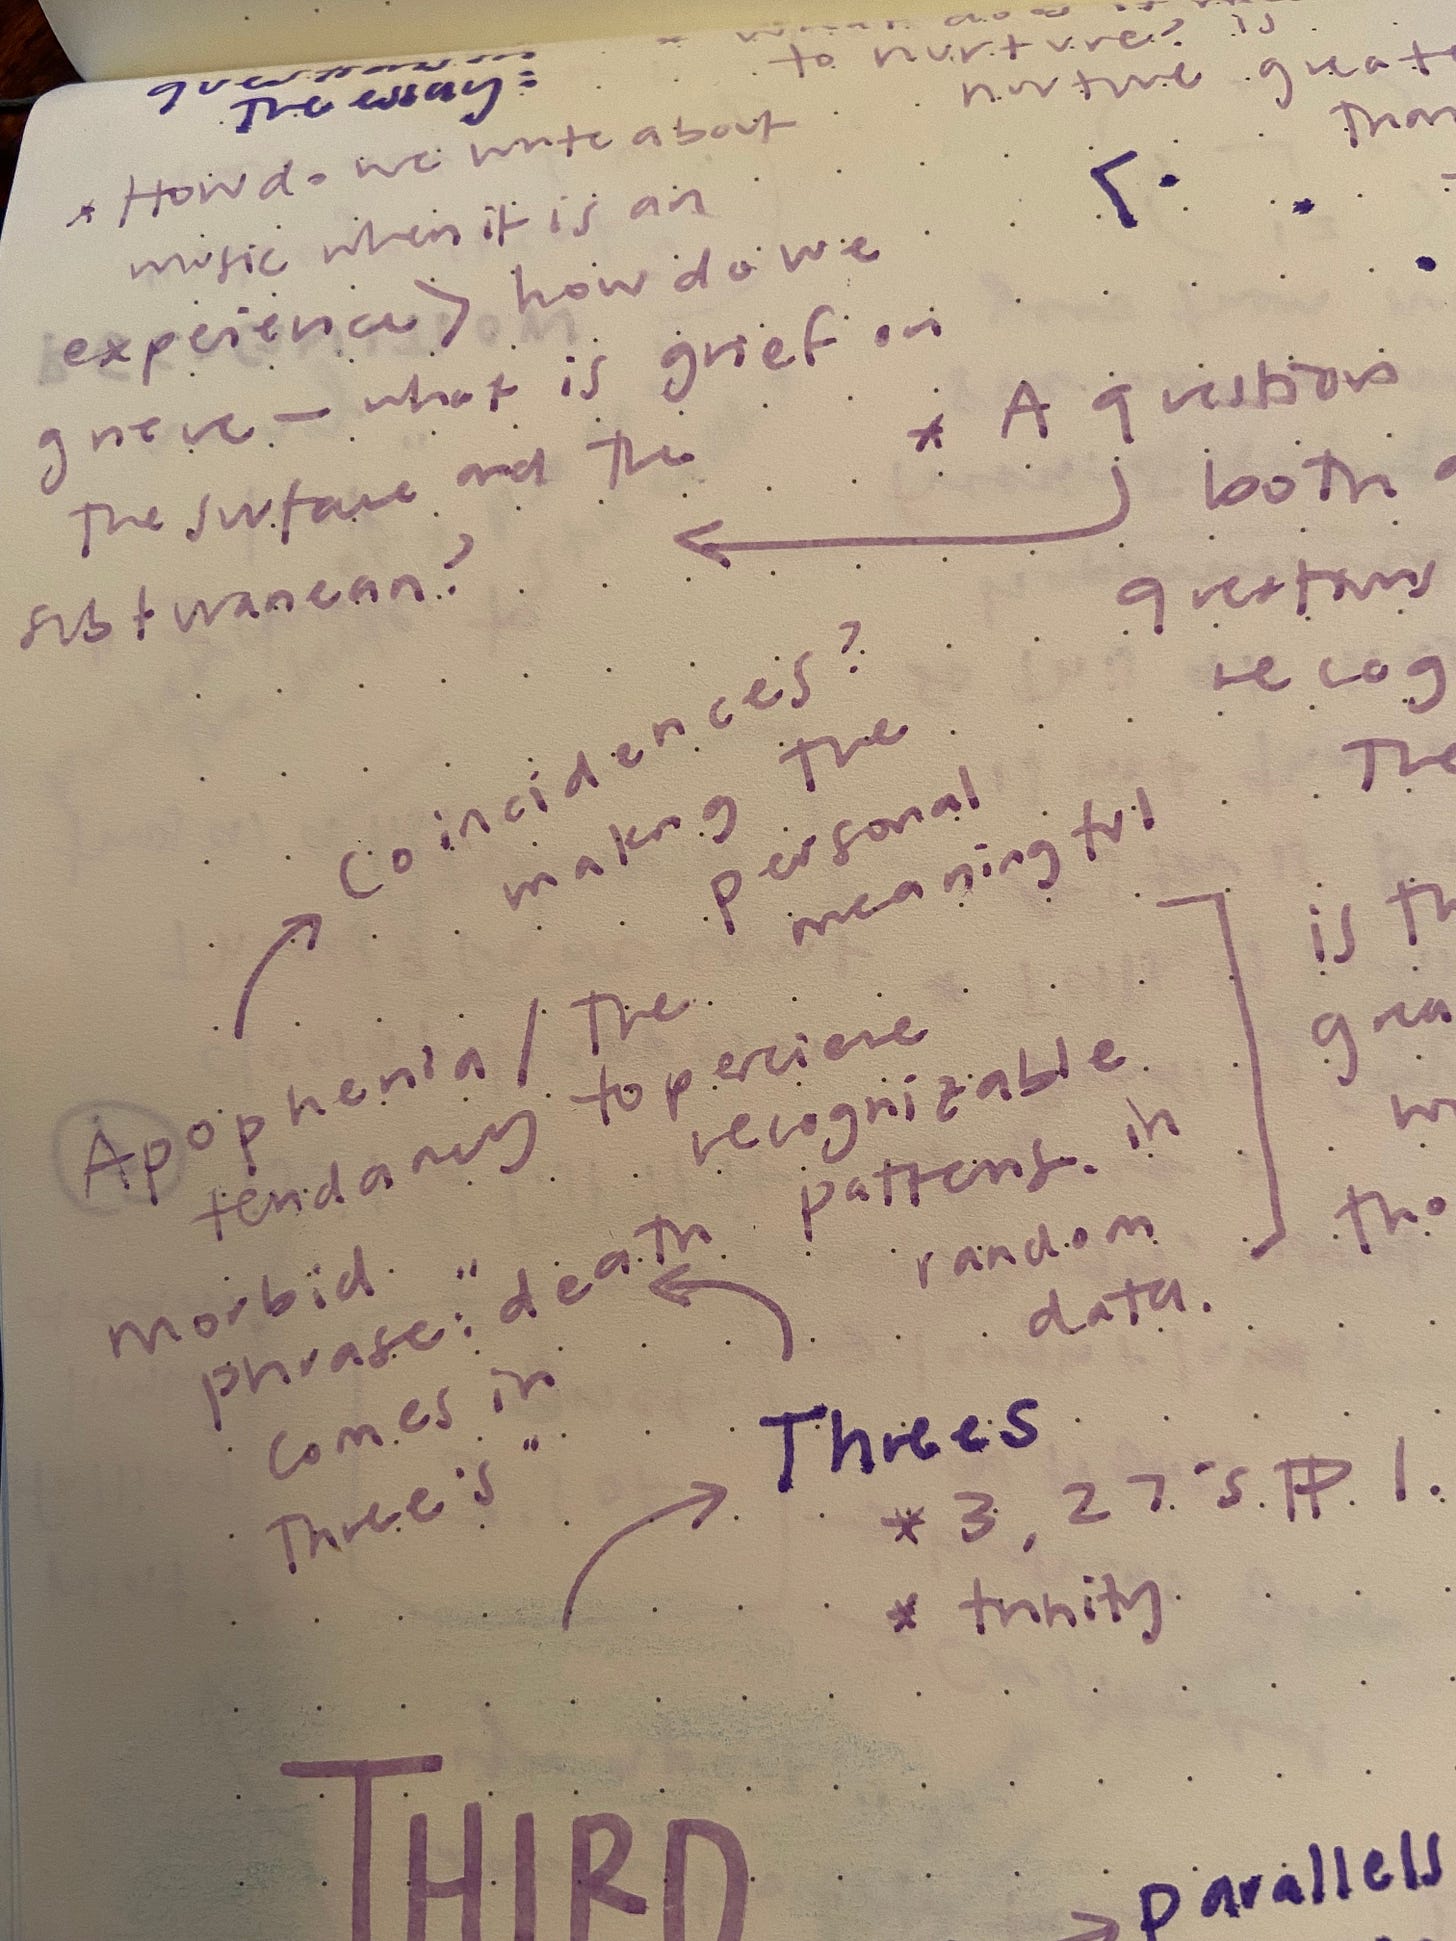 The essay:
* How do we write about
music when it is an
experience> how do we
grieve — what is grief on
the surface and the
subturanean?
to nurture? is
nurture
* A question
both
questions
Coincidences?
making the
personal
meaningful
Apophenia / The
tendancy to perceieve
recognizable
patterns. in
random
data.
is
Morbid
phrase: "death
comes in
Three's"
Threes
* 3, 27's
* trinity
THIRD
parallels